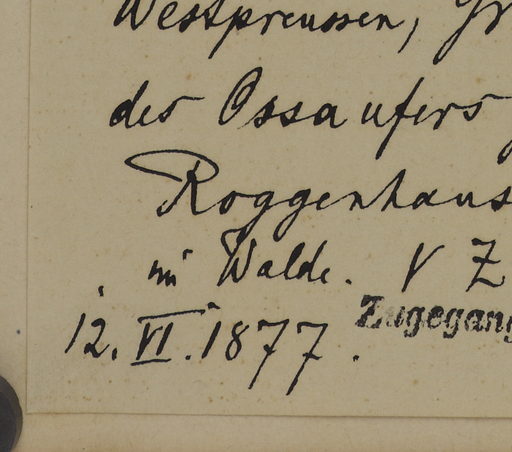 Westpreussen, Gr
des Ossaufers
Roggenhaus
im Walde. V Z
12. VI. 1877.
Zugegang